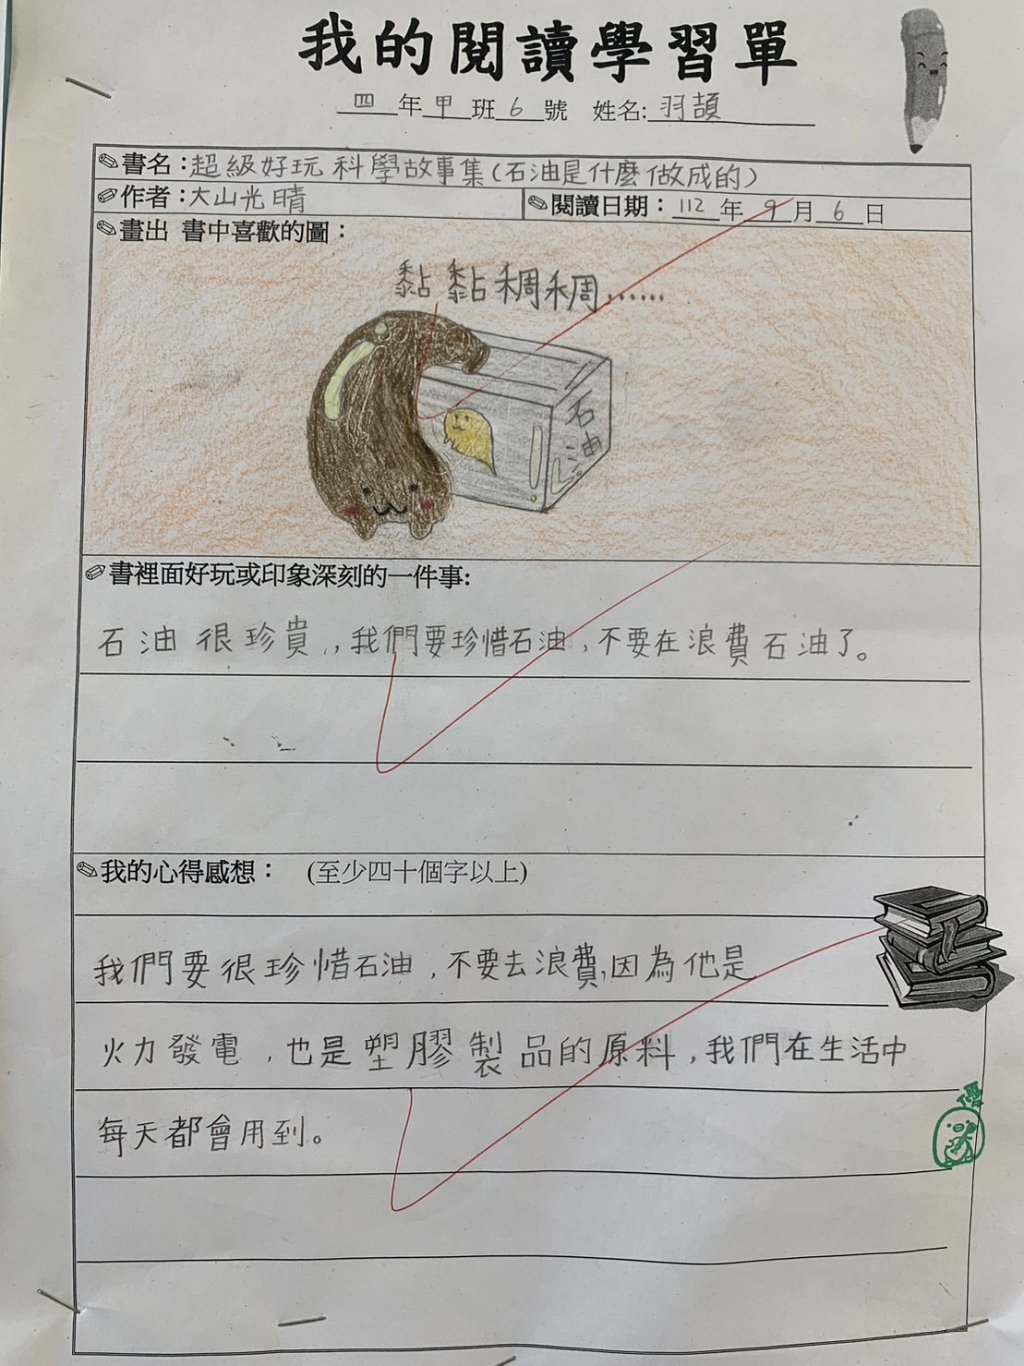 我的閱讀學習單
四年甲班6號 姓名:羽頡
書名：超級好玩科學故事集(石油是什麼做成的)
作者：大山光晴 閱讀日期：112年9月6日
畫出 書中喜歡的圖：
黏黏稠稠......
石油
書裡面好玩或印象深刻的一件事:
石油很珍貴,,我們要珍惜石油,不要在浪費石油了。
我的心得感想： (至少四十個字以上)
我們要很珍惜石油,不要去浪費,因為他是
火力發電,也是塑膠製品的原料,我們在生活中
每天都會用到。
優